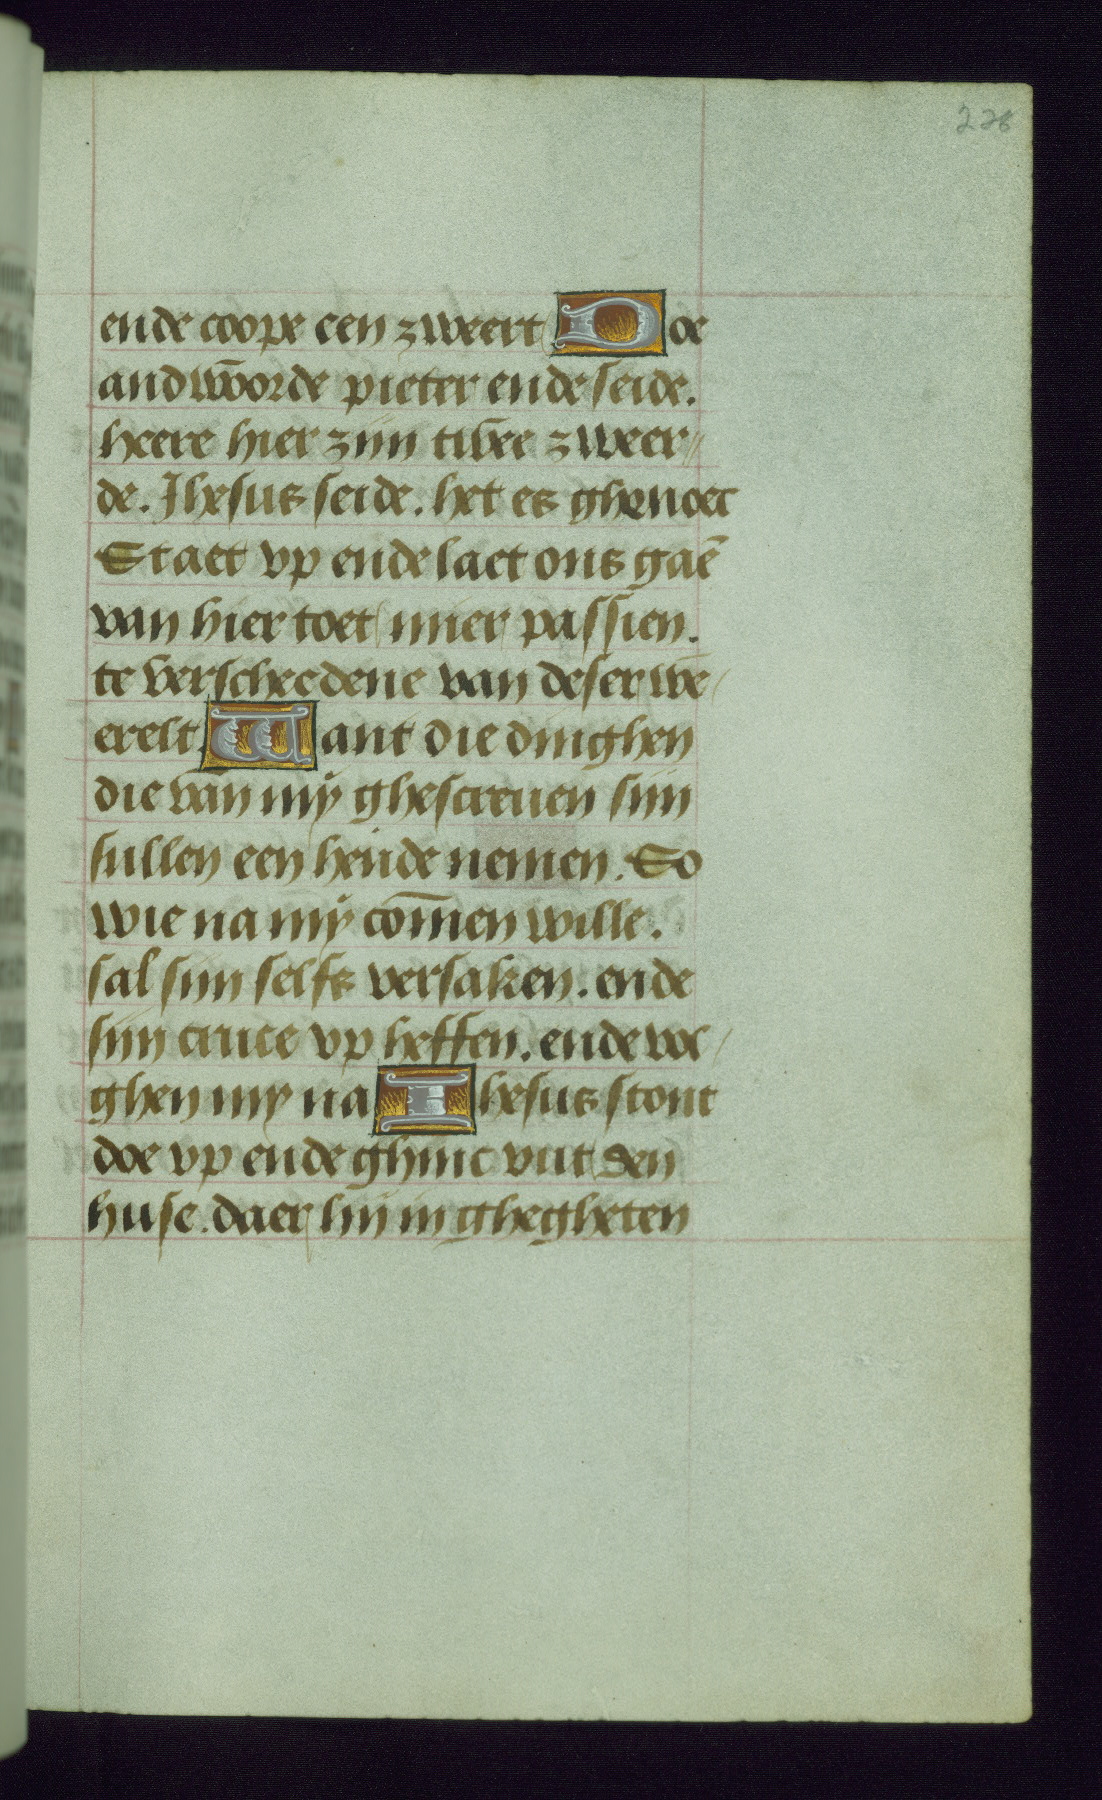 228
ende coope een zweert Doe
andwoorde pieter ende seide.
heere hier zijn twee zweer//
de. Jhesus seide. het es ghenoec
Staet vp ende laet ons gaē
van hier toet mijer passien.
te verscheedene van deser we/
erelt. Want die dinghen
die van mÿ ghescreuen sijn
sullen een heinde nemen. So
wie na mÿ com̄en wille.
sal sijn selfs versaken. ende
sijn cruce vp heffen. ende vol/
ghen my na Jhesus stont
doe vp ende ghinc vut den
huse. daer hij in ghegheten